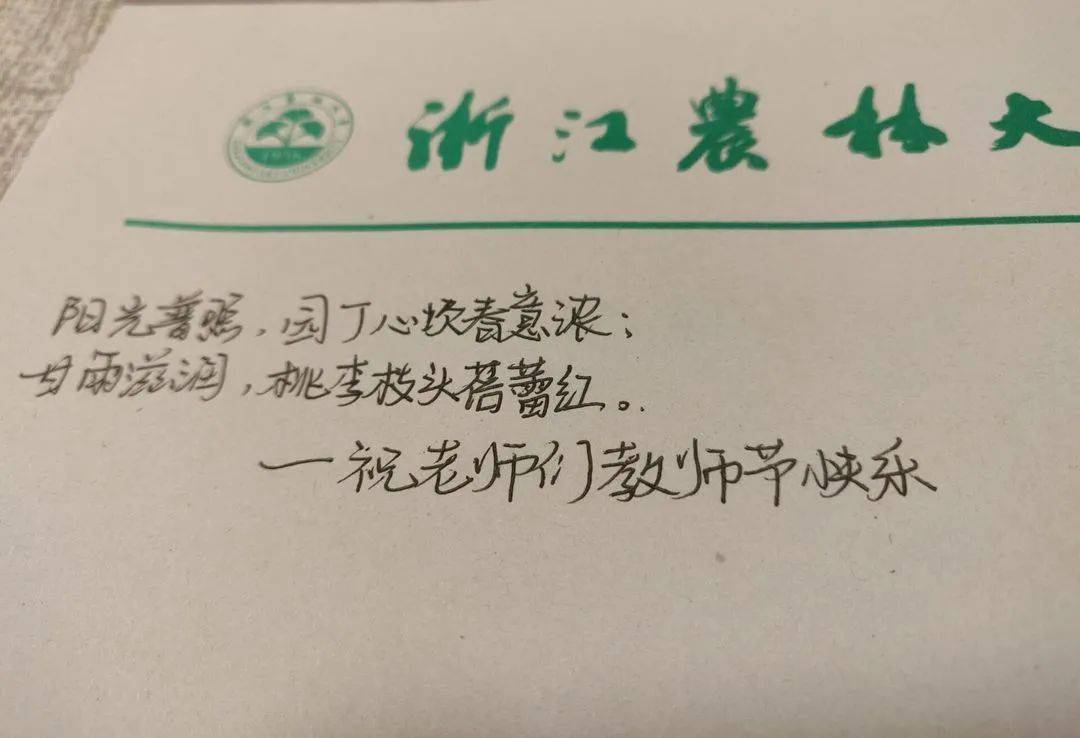 浙江農林大
阳光普照,园丁心坎春意浓;
甘雨滋润,桃李枝头蓓蕾红。
一祝老师们教师节快乐